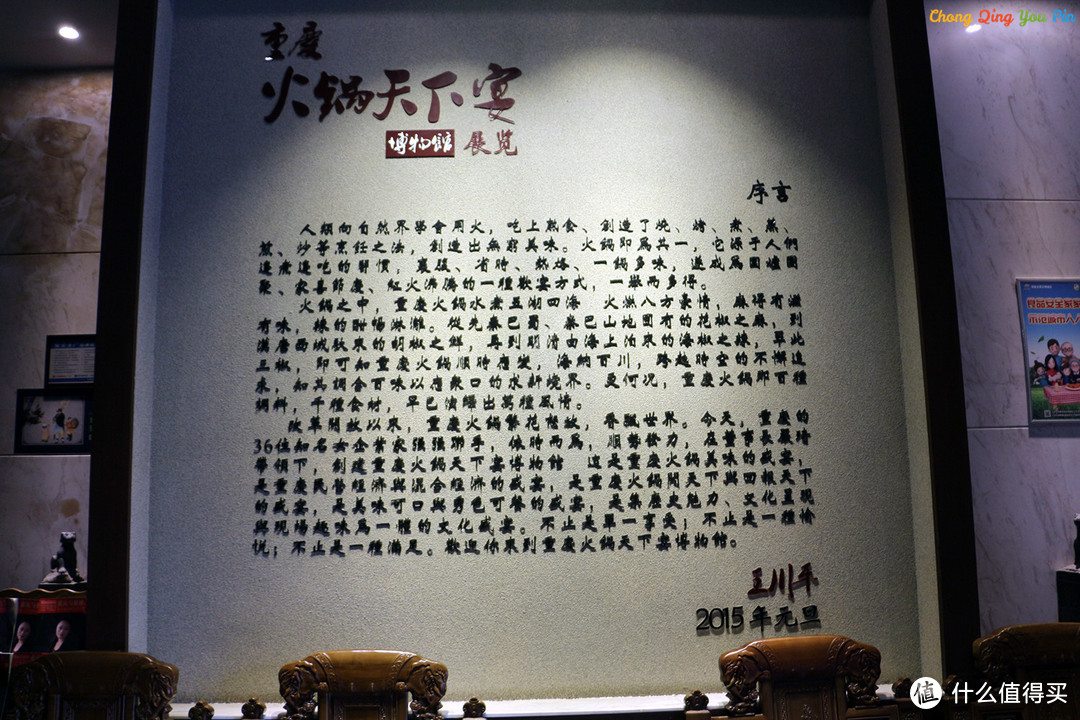 Chong Qing You Pin
重慶
火锅天下宴
博物館 展览
序言
人類向自然界學會用火，吃上熟食、創造了燒、烤、煮、蒸、
蒸、炒等烹飪之法，創造出無窮美味。火鍋即爲其一，它源于人們
邊煮邊吃的習慣，裹腹、省時、熱烙、一鍋多味，遂成爲圍爐團
聚、家喜節慶、紅火沸騰的一種歡宴方式，一舉兩多得。
火鍋之中，重慶火鍋水煮五湖四海，火燃八方豪情，麻得有滋
有味，辣的酣暢淋灕。從先秦巴蜀、秦巴山地固有的花椒之麻，到
漢唐西域馱來的胡椒之鮮，再到明清由海上泊來的海椒之辣，單此
三椒，即可知重慶火鍋順時應變，海納百川，跨越時空的不懈追
求，知其調合百味以應衆口的求新境界。更何况，重慶火鍋即百種
調料，千種食材，早已演繹出萬種風情。
改革開放以來，重慶火鍋繁花怒放，香飄世界。今天，重慶的
36位知名女企業家强强聯手，依時而爲，順勢發力，在董事長嚴琦
帶領下，創建重慶火鍋天下宴博物館 這是重慶火鍋美味的盛宴，
是重慶民營經濟與混合經濟的盛宴，是重慶火鍋開天下與回報天下
的盛宴，是美味可口與秀色可餐的盛宴，是集歷史魅力、文化呈現
與現場趣味爲一體的文化盛宴。不止是單一享受；不止是一種愉
悦；不止是一種滿足。歡迎你來到重慶火鍋天下宴博物館。
王川平
2015年元旦
值 什么值得买